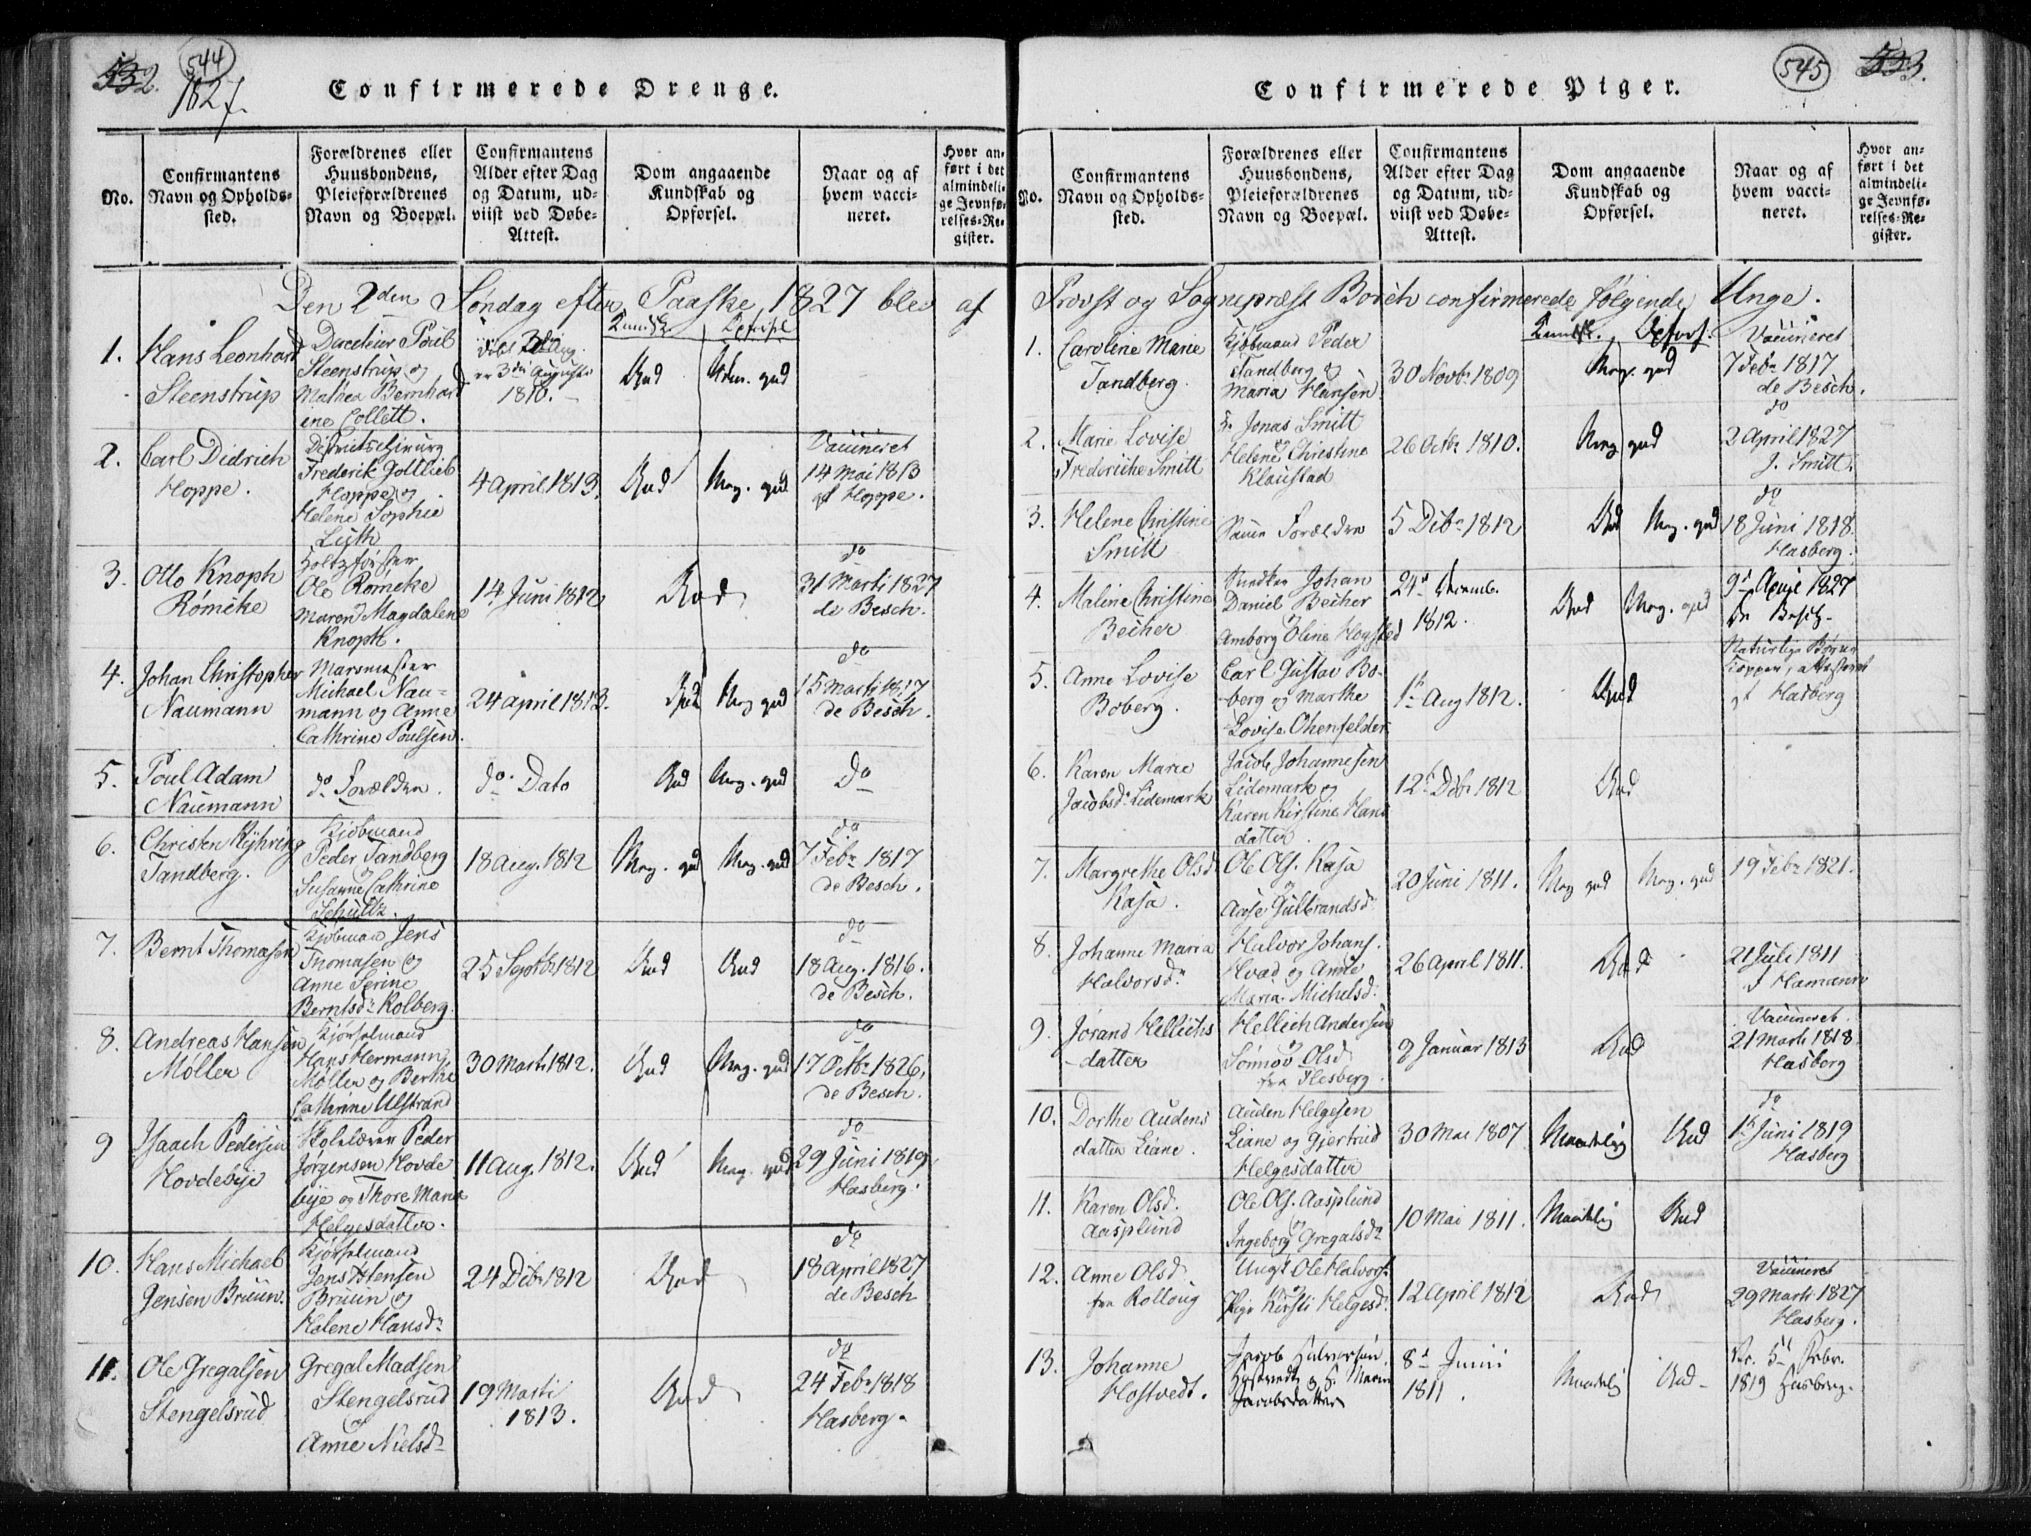 532.
544
1827.
Confirmerede Drenge.
No.
Confirmantens
Navn og Opholds-
sted.
Forældrenes eller
Huusbondens,
Pleieforældrenes
Navn og Boepæl.
Confirmantens
Alder efter Dag
og Datum, ud-
viist ved Døbe-
Attest.
Dom angaaende
Kundskab og
Opførsel.
Naar og af
hvem vacci-
neret.
Hvor an-
ført i det
almindeli-
ge Jevnfø-
relses-Re-
gister.
Den 2den Søndag efter Paaske 1827 blev af
1.
Hans Leonhard
Steenstrup
Directeur Poul
Steenstrup og
Mathea Bernhard
ine Collett.
3die August
1810.
Gud
gud
2.
Carl Didrich
Hoppe.
Districtschirurg
Frederik Gottlieb
Hoppe og
Helene Sophie
Lyth
4 April 1813.
Gud
Meg. gud
Vaccineret
14 Mai 1813
af Hoppe.
3.
Otto Knoph
Rømcke
Holtzførster
Ole Rømcke
Maren Magdalene
Knoph.
14 Juni 1812
God
do
31 Marti 1827
de Besch.
4.
Johan Christopher
Naumann
Marsmester
Michael Nau-
mann og Anne
Cathrine Poulsen.
24 April 1813.
Meg gud
do
15 Marti 1817
de Besch.
5.
Poul Adam
Naumann
do Forældre.
do Dato
Gud
Meg. gud
do
6.
Christen Kyhring
Tandberg.
Kjøbmand
Peder Tandberg
og
Susanne Cathrine
Schultz.
18 Aug. 1812
Meg. gud
Meg. gud
do
7 Febr 1817
de Besch.
7.
Bernt Thomasen
Kjøbmand Jens
Thomasen og
Anne Serine
Berntsdr Kolberg.
25 Septbr 1812
Gud
Gud
do
18 Aug. 1816.
de Besch.
8.
Andreas Hansen
Møller
Kjørselmand
Hans Hermann
Møller og Berthe
Cathrine Ulstrand
30 Marti 1812.
Gud
Meg. gud
do
17 Octbr 1826.
de Besch.
9
Isaach Pedersen
Hovdebye
Skolelærer Peder
Jørgensen Hovde
bye og Thore Maria
Helgesdatter.
11 Aug. 1812.
Gud
Meg. gud
do
29 Juni 1819.
Hasberg.
10.
Hans Michael
Jensen Bruun.
Kjørselmand
Jens Stensen
Bruun og
Helene Hansdr
24 Dcbr 1812
God
do
18 April 1827
de Besch
11.
Ole Gregalsen
Stengelsrud
Gregal Madsen
Stengelsrud
og
Anne Nielsdr
19 Marti
1813.
God
do
24 Febr 1818
Hasberg.
545
533.
Confirmerede Piger.
No.
Confirmantens
Navn og Opholds-
sted.
Forældrenes eller
Huusbondens,
Pleieforældrenes
Navn og Boepæl.
Confirmantens
Alder efter Dag
og Datum, ud-
viist ved Døbe-
Attest.
Dom angaaende
Kundskab og
Opførsel.
Naar og af
hvem vacci-
neret.
Hvor an-
ført i det
almindeli-
ge Jevnfø-
relses-Re-
gister.
Provst og Sognepræst Borch confirmerede følgende Unge.
1.
Caroline Marie
Tandberg.
Kjøbmand Peder
Tandberg og
Maria Hansen
30 Novbr 1809
Meg. gud
Vaccineret
7 Febr 1817
de Besch.
2.
Marie Lovise
Frederiche Smitt
Jonas Smitt
og
Helene Christine
Klaustad
26 Octbr 1810.
Meg gud
do
2 April 1827
J. Smitt.
3.
Helene Christine
Smitt
Samme Forældre
5 Dcbr 1812
God
Meg. gud
do
18 Juni 1818.
Hasberg.
4.
Maline Christine
Becher
Johan
Daniel Becher
og
Amborg Oline Hogsted
24de Decemb.
1812.
God
Meg. gud
9de April 1827
de Besch.
5.
Anne Lovise
Boberg.
Carl Gustav Bo-
berg og Marthe
Lovise Ohenfelder
1ste Aug 1812.
Gud
Naturlige Børne
Kopper, attesteret
af Hasberg
6.
Karen Marie
Jacobsdr Lidemark
Jacob Johannesen
Lidemark og
Karen Kirstine Hans
datter
12te Dcbr 1812
God
7.
Margrethe Olsd
Kasa.
Ole Ols. Kasa
og
Aase Gulbrandsd.
20 Juni 1811.
Meg gud
Meg. gud
19 Febr 1821.
8.
Johanne Maria
Halvorsdr
Halvor Johans.
Hvad og Anne
Maria Michelsd.
26 April 1811.
God
21 Juli 1811
J Hamann
9.
Jørand Hellichs
datter
Hellich Andersen
og
Sønnøv Olsd
fra Flesberg.
2 Januar 1813
God
Vaccineret
21 Marti 1818
Hasberg
10.
Dorthe Audens
datter Liane.
Auden Helgesen
Liane og Gjertrud
Helgesdatter
30 Mai 1807.
Maadelig
Gud
do
1ste Juni 1819
Hasberg
11.
Karen Olsd.
Aasplund
Ole Ols. Aasplund
og
Ingeborg Gregalsdr
10 Mai 1811.
Maadelig
Gud
12.
Anne Olsd
fra Rolloug
Ungk Ole Halvors.
og
Pige Kirsti Helgesd.
12 April 1812
God
Vaccineret
29 Marti 1827
Hasberg.
13.
Johanne
Hostvedt.
Jacob Halvorsen
Hostvedt og Maren
Jacobsdatter
8de Junii
1811.
Maadelig
Gud
Vac. 5te Febr.
1819 Hasberg.